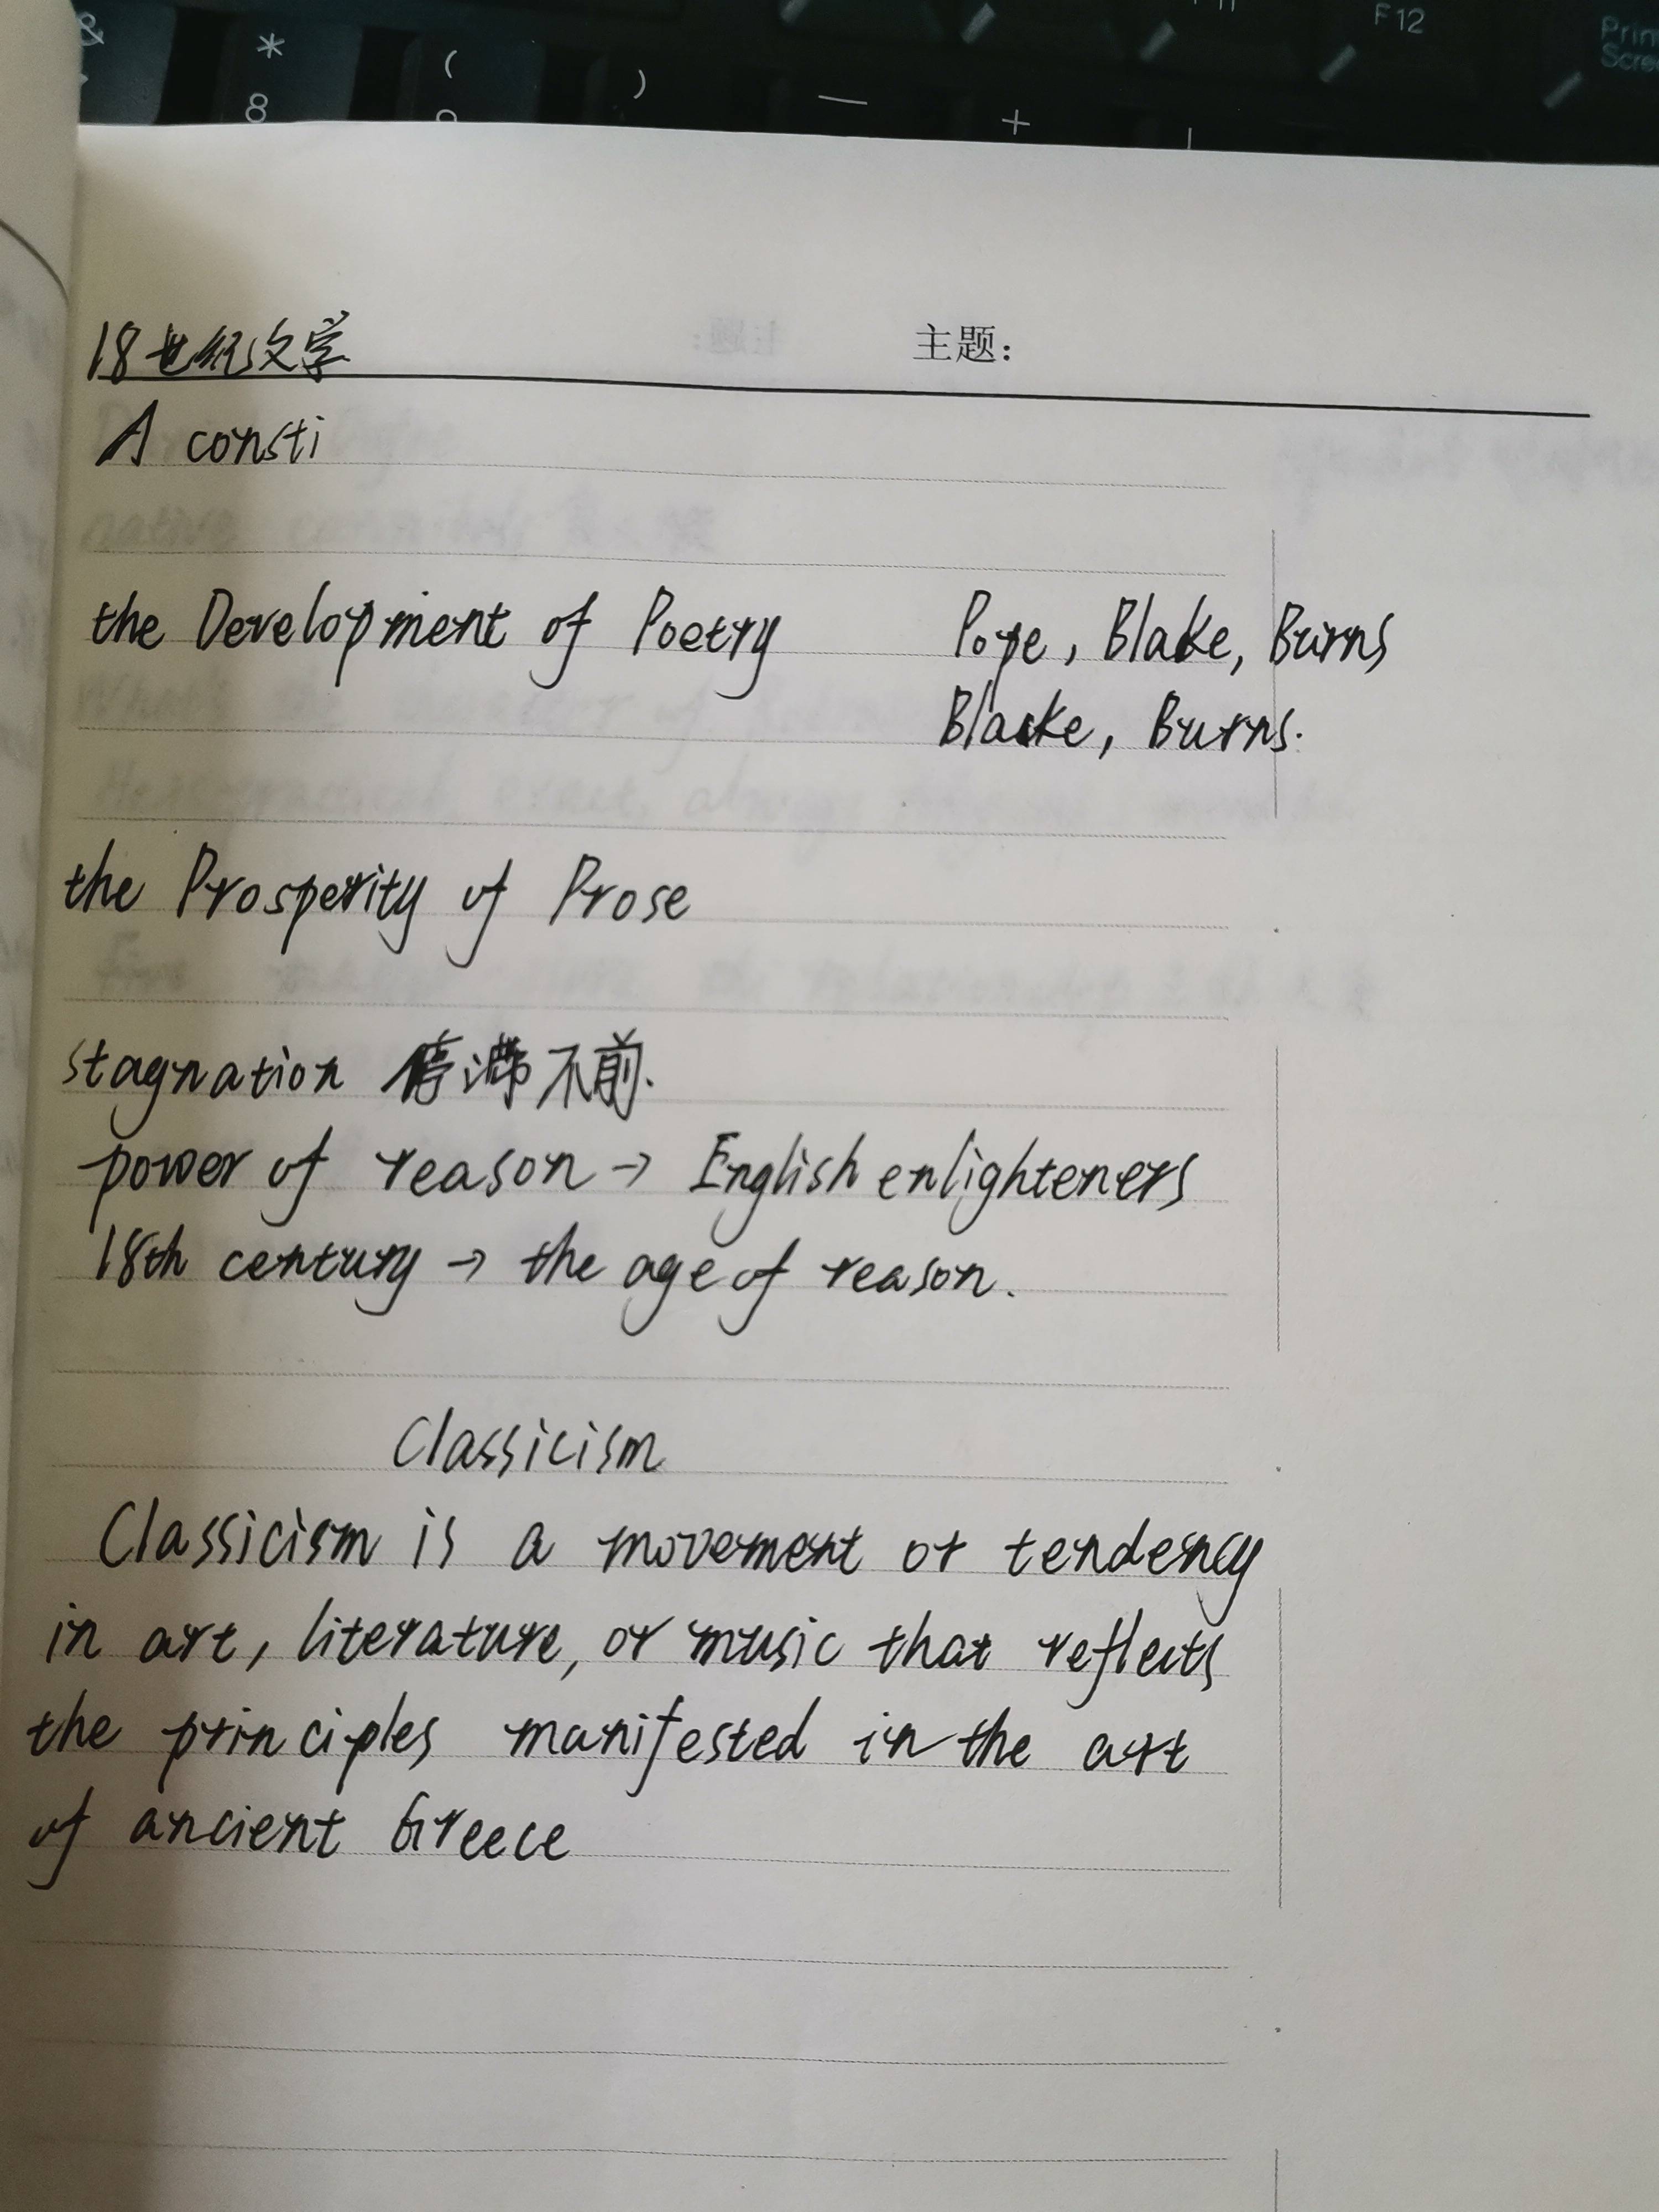 &
*
8
(
)
—
+
F12
18世纪文学
主题:
A consti
the Development of Poetry Pope, Blake, Burns
Blake, Burns.
the Prosperity of Prose
stagnation 停滞不前.
power of reason → English enlighteners
18th century → the age of reason.
Classicism
Classicism is a movement or tendency
in art, literature, or music that reflects
the principles manifested in the art
of ancient Greece